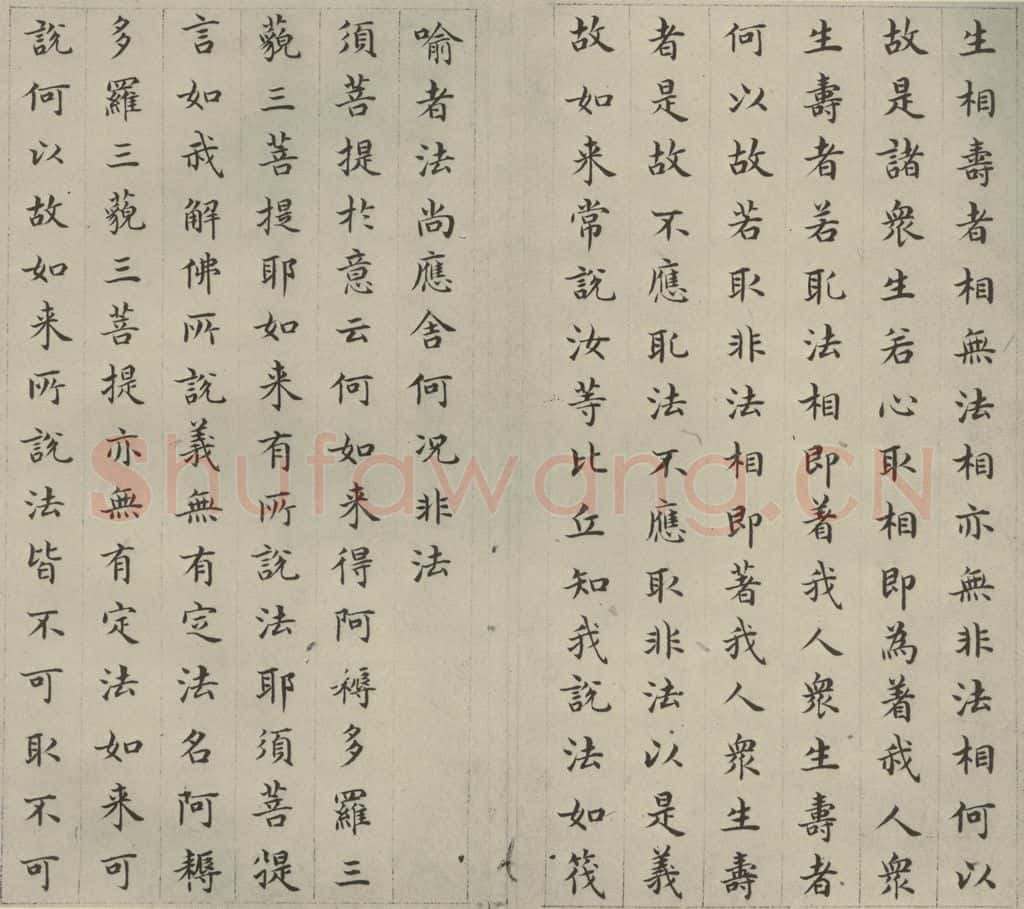 生相壽者相無法相亦無非法相何以
故是諸衆生若心取相即為著我人衆
生壽者若取法相即著我人衆生壽者
何以故若取非法相即著我人衆生壽
者是故不應取法不應取非法以是義
故如来常説汝等比丘知我説法如筏
喻者法尚應舍何况非法
須菩提於意云何如来得阿耨多羅三
藐三菩提耶如来有所説法耶須菩提
言如我解佛所説義無有定法名阿耨
多羅三藐三菩提亦無有定法如来可
説何以故如来所説法皆不可取不可
Shufawang.CN